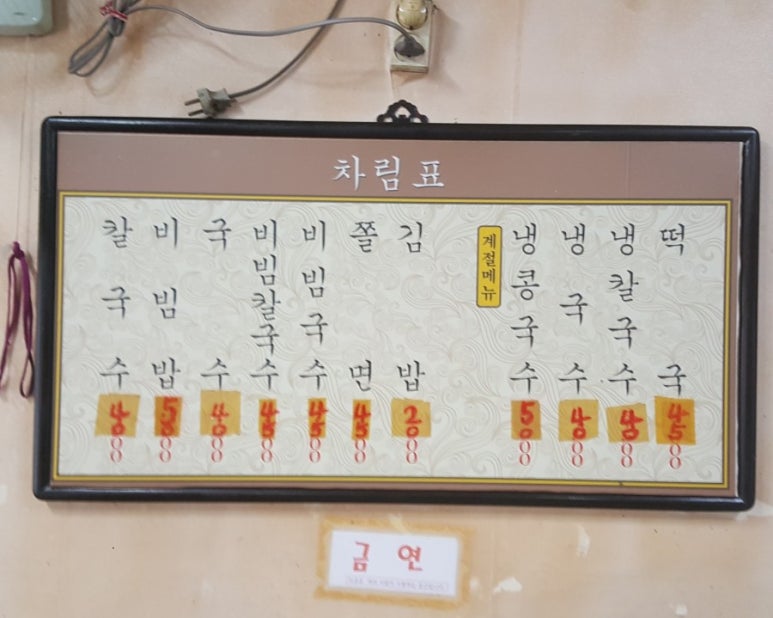 차림표
칼국수 4000
비빔밥 5000
국수 4000
비빔칼국수 4500
비빔국수 4500
쫄면 4500
김밥 2000
계절메뉴
냉콩국수 5000
냉국수 4000
냉칼국수
떡국 4500
금연